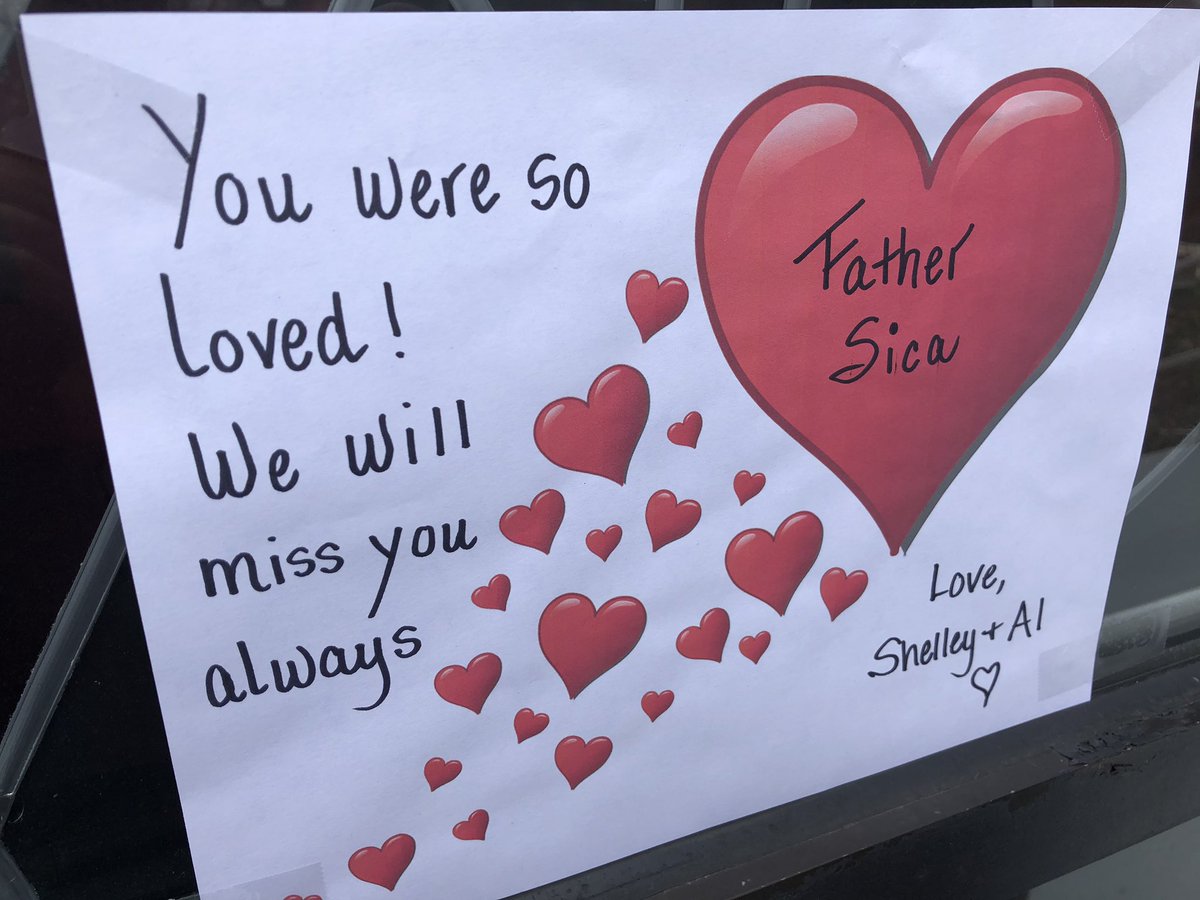 You were so
Loved!
We will
miss you
always
Father
Sica
Love,
Shelley + Al